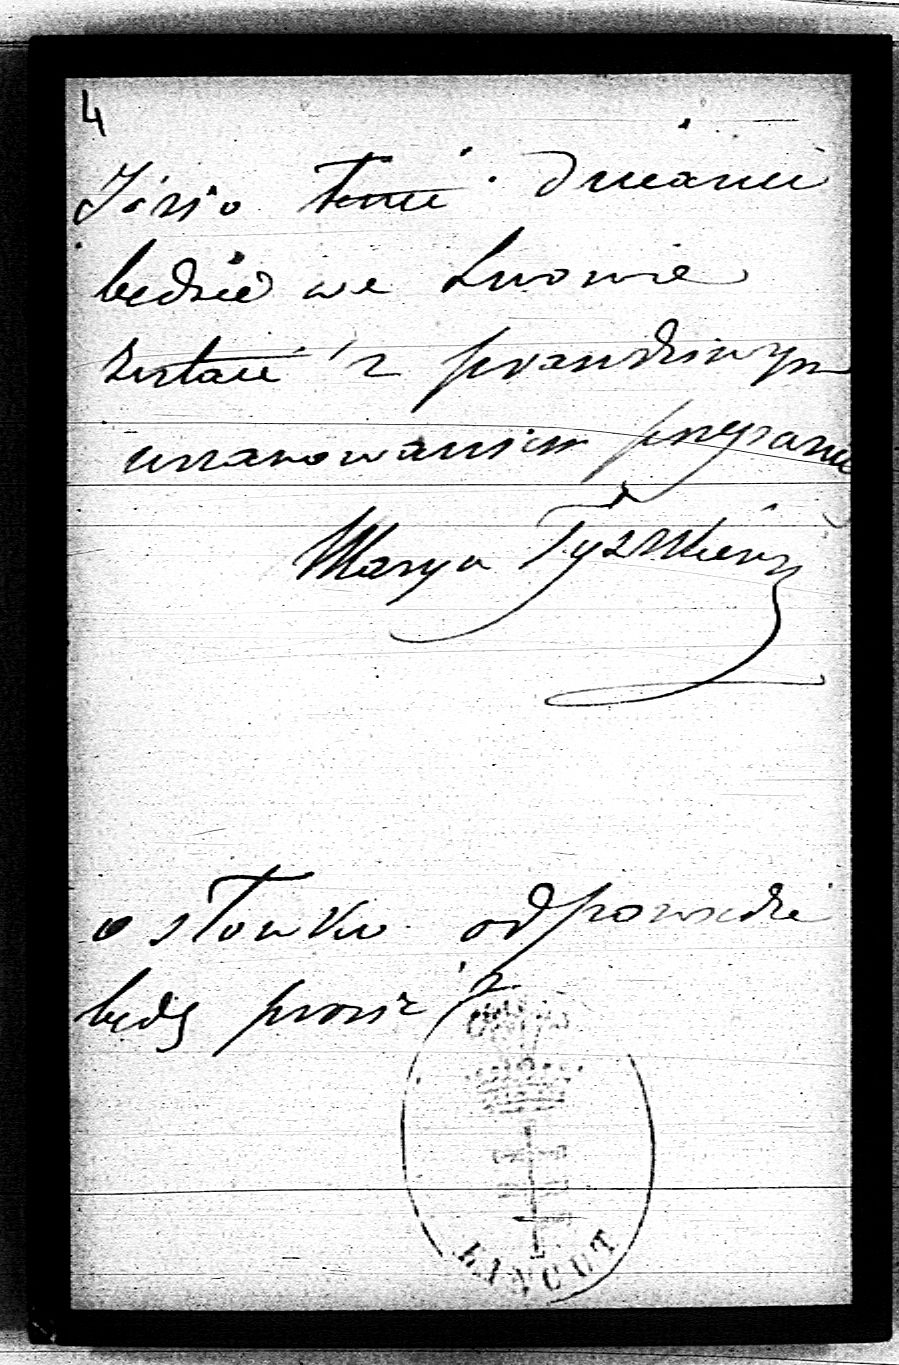 4
Józio temi dniami
będzie we Lwowie
zostaję z prawdziwym
uszanowaniem
Marya Tyszkiewicz
o słówko odpowiedzi
będę prosić
ŁAŃCUT